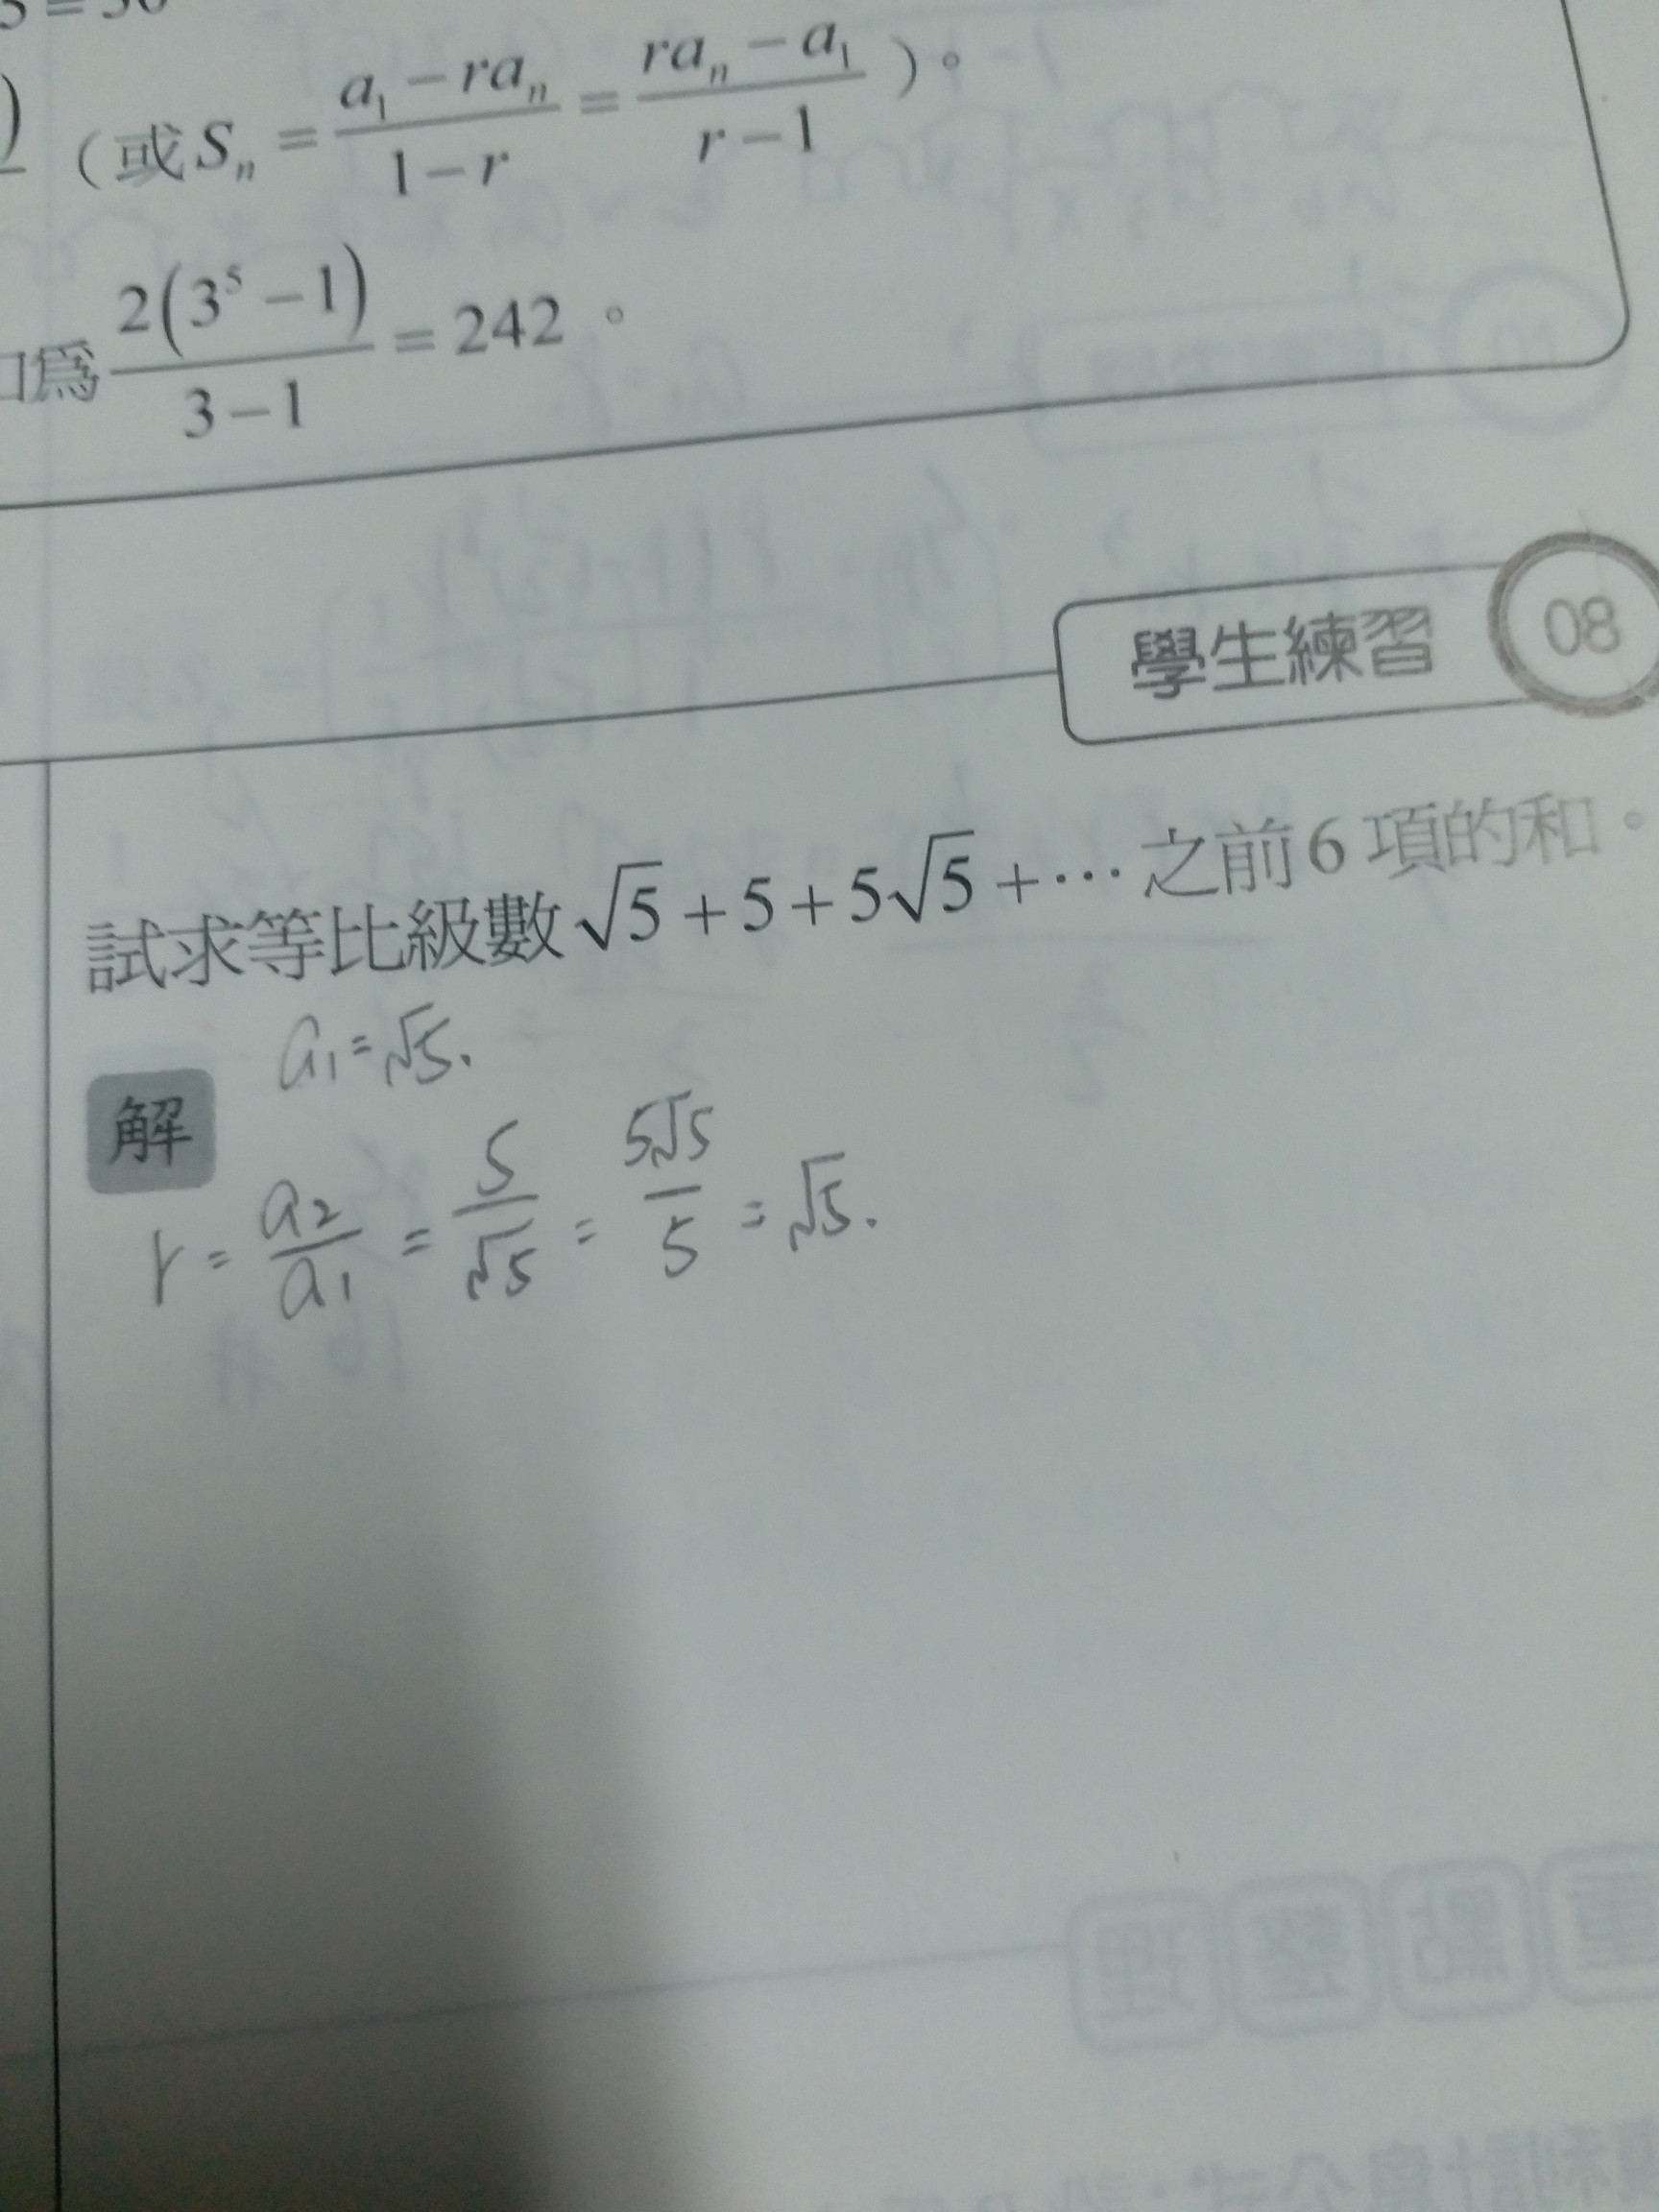 (或 Sₙ = (a₁ − raₙ)/(1 − r) = (raₙ − a₁)/(r − 1) )。
為 2(3⁵ − 1)/(3 − 1) = 242。
學生練習 08
試求等比級數 √5 + 5 + 5√5 + ⋯ 之前 6 項的和。
解
a₁ = √5.
r = a₂/a₁ = 5/√5 = 5√5/5 = √5.